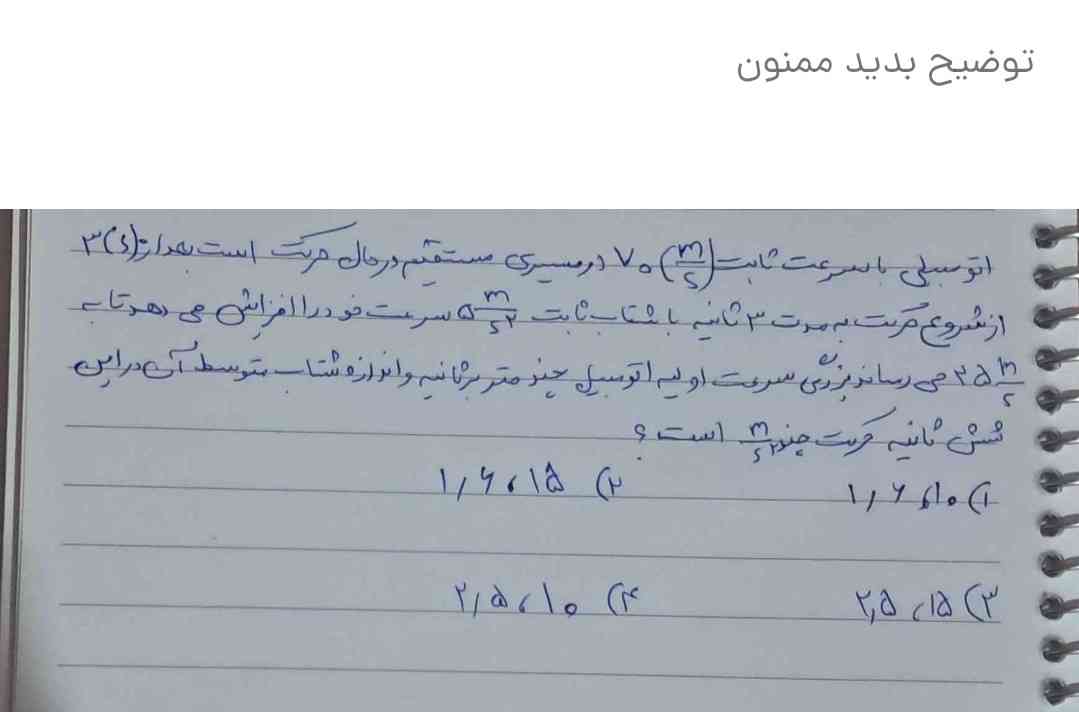 توضیح بدید ممنون
اتومبیلی با سرعت ثابت V₀(m/s) در مسیری مستقیم در حال حرکت است بعد از ۳(s)
از شروع حرکت به مدت ۳ ثانیه با شتاب ثابت ۵ m/s² سرعت خود را افزایش می دهد تا به
۲۵ m/s می رساند بزرگی سرعت اولیه اتومبیل چند متر بر ثانیه و اندازه شتاب متوسط آن در این
شش ثانیه حرکت چند m/s² است؟
۱) ۱۰، ۱٫۶
۲) ۱۵، ۱٫۶
۳) ۱۵، ۲٫۵
۴) ۱۰، ۲٫۵